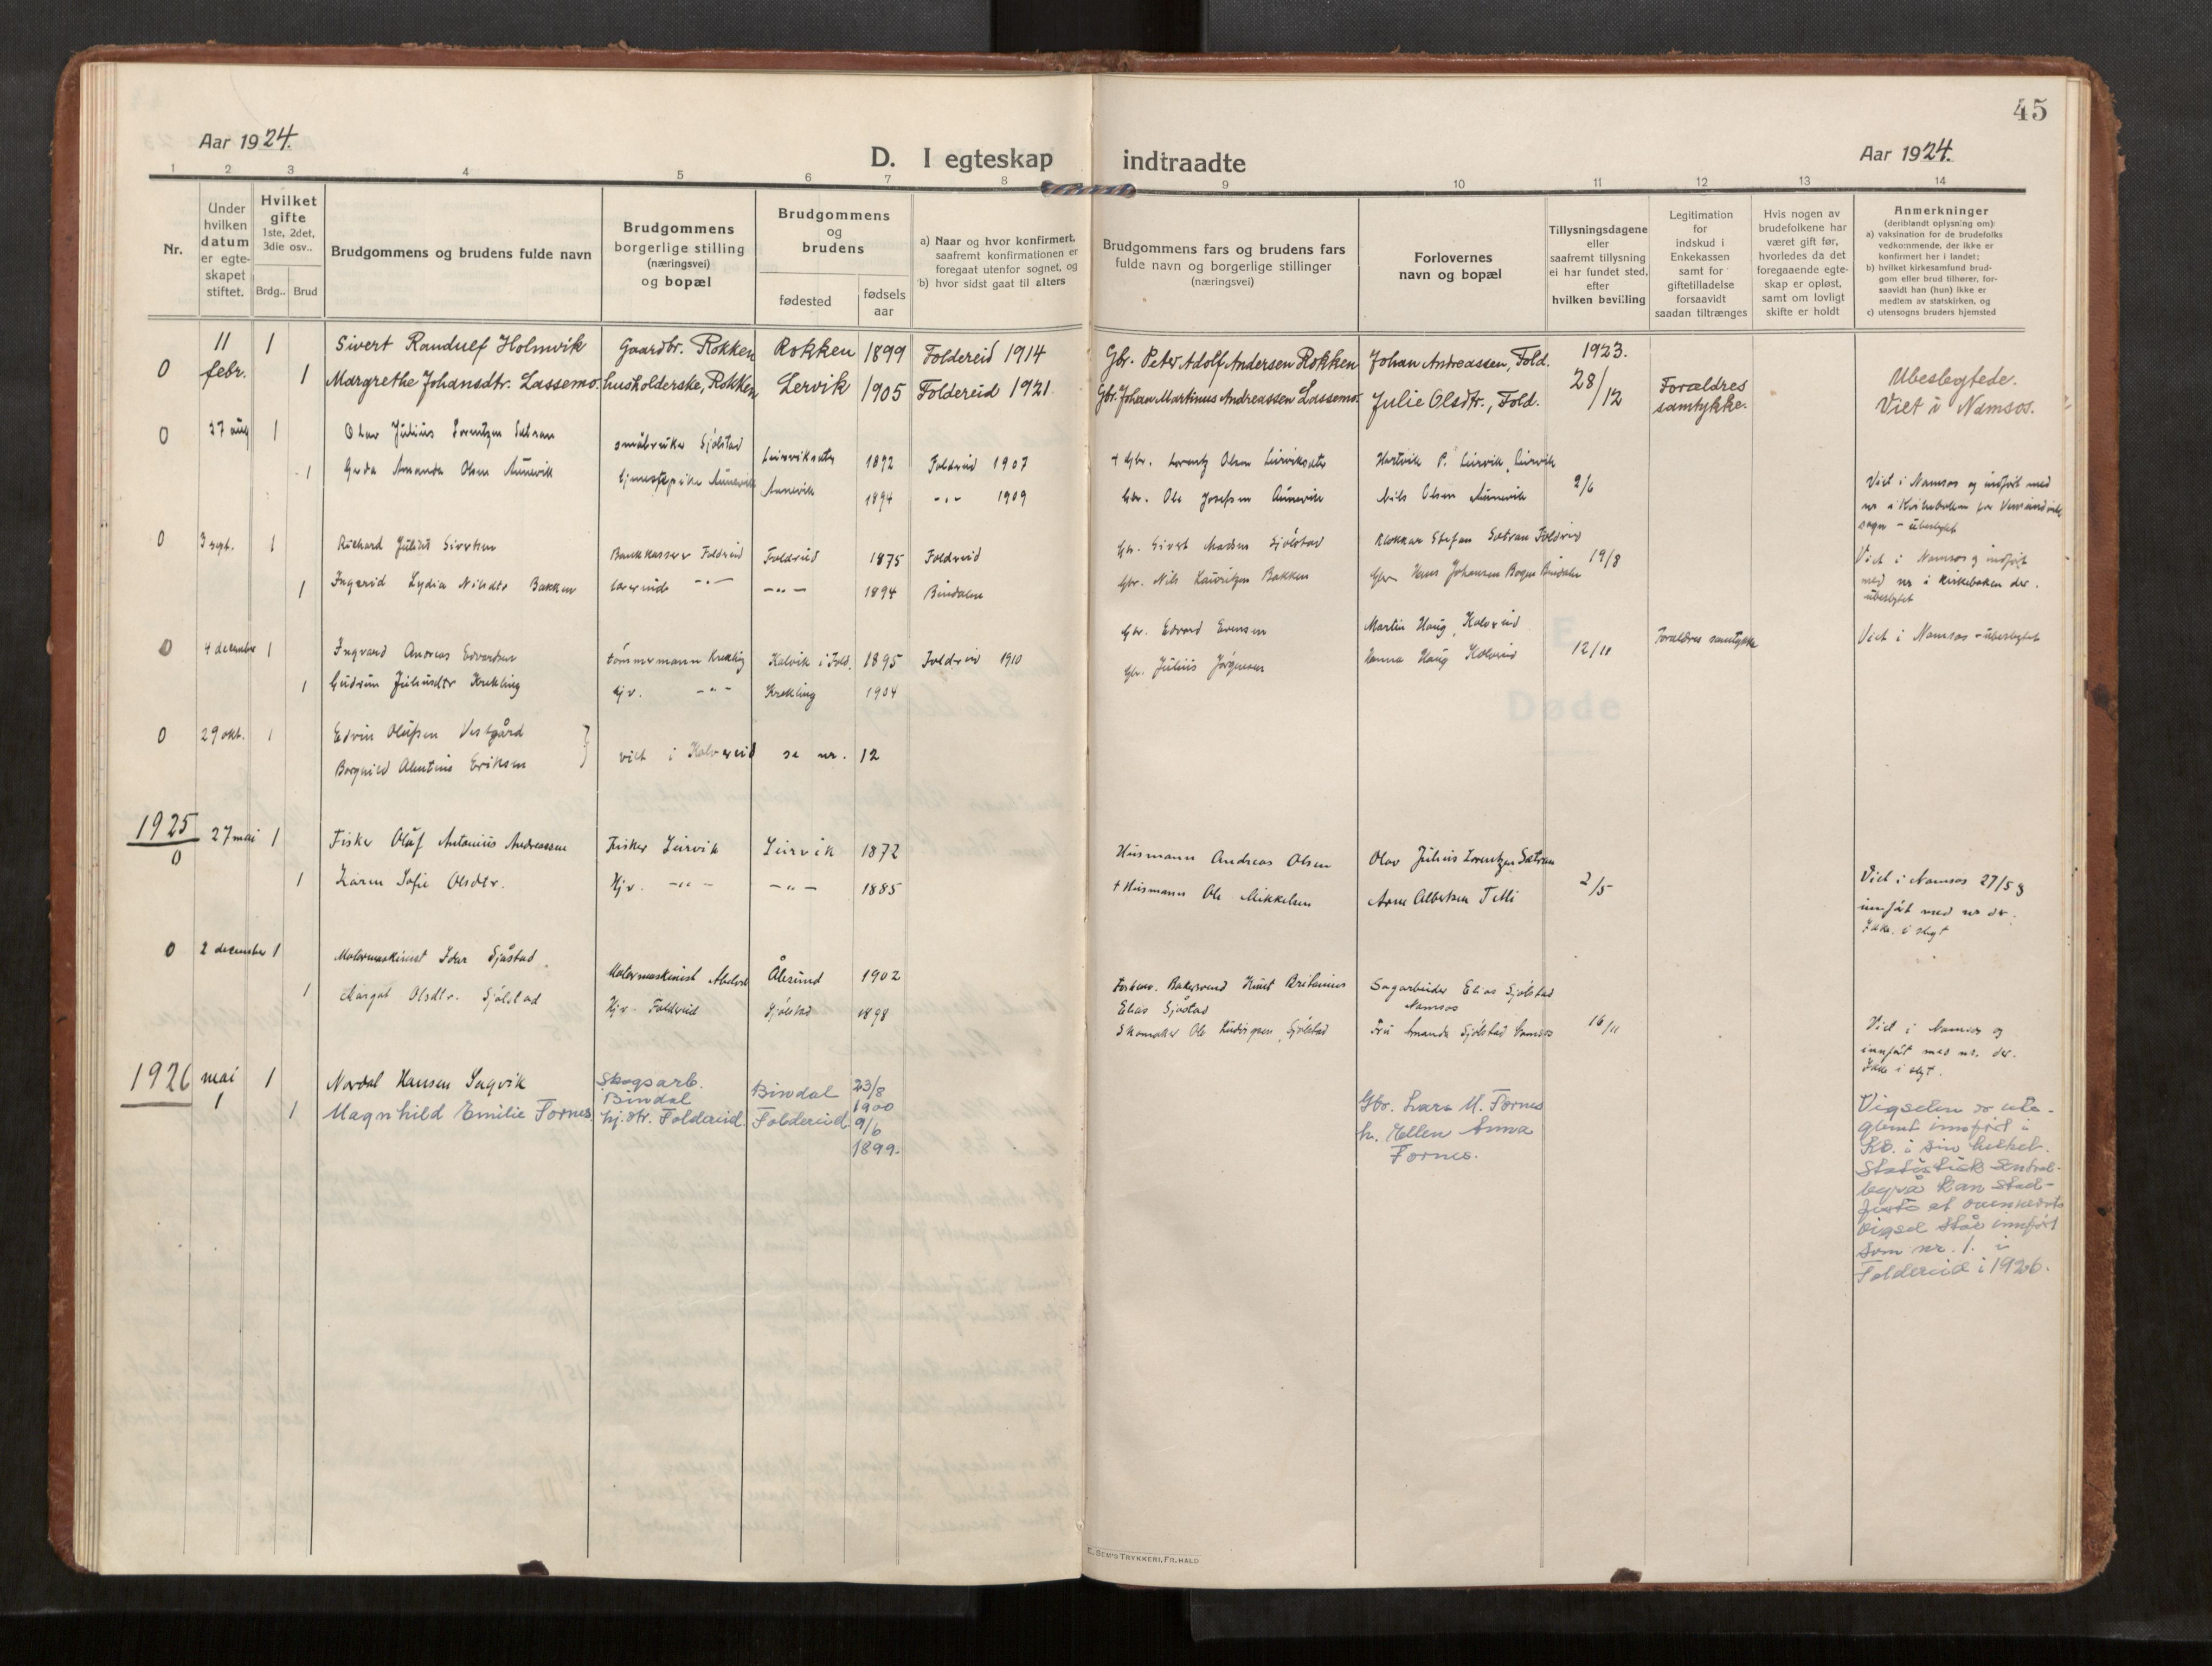 45
Aar 1924.
D. I egteskap indtraadte
Aar 1924.
1 2 3 4 5 6 7 8 9 10 11 12 13 14
Nr.
Under
hvilken
datum
er egte-
skapet
stiftet.
Hvilket
gifte
1ste, 2det,
3die osv..
Brdg.. Brud
Brudgommens og brudens fulde navn
Brudgommens
borgerlige stilling
(næringsvei)
og bopæl
Brudgommens
og
brudens
fødested
fødsels
aar
a) Naar og hvor konfirmert,
saafremt konfirmationen er
foregaat utenfor sognet, og
b) hvor sidst gaat til alters
Brudgommens fars og brudens fars
fulde navn og borgerlige stillinger
(næringsvei)
Forlovernes
navn og bopæl
Tillysningsdagene
eller
saafremt tillysning
ei har fundet sted,
efter
hvilken bevilling
Legitimation
for
indskud i
Enkekassen
samt for
giftetilladelse
forsaavidt
saadan tiltrænges
Hvis nogen av
brudefolkene har
været gift før,
hvorledes da det
foregaaende egte-
skap er opløst,
samt om lovligt
skifte er holdt
Anmerkninger
(deriblandt oplysning om):
a) vaksination for de brudefolks
vedkommende, der ikke er
konfirmert her i landet;
b) hvilket kirkesamfund brud-
gom eller brud tilhører, for-
saavidt han (hun) ikke er
medlem av statskirken, og
c) utensogns bruders hjemsted
0 11 febr. 1 Sivert Randulf Holmvik Gaardbr. Rokken Rokken 1899 Foldereid 1914 Gbr. Peter Adolf Andersen Rokken Johan Andreassen, Fold. 1923.
1 Margrethe Johansdtr. Lassemo. husholderske, Rokken Lervik 1905 Foldereid 1921. Gbr. Johan Martinus Andreassen Lassemo. Julie Olsdtr., Fold. 28/12 Forældres samtykke. Ubeslegtede.
Viet i Namsos.
0 27 aug 1 Olav Julius Lorentzen Sætran småbruker Sjølstad Leirviksæter 1892 Foldreid 1907 + Gbr. Lorentz Olsen Leirviksæter Hartvik P. Leirvik, Leirvik
1 Gerda Amanda Olsen Aunevik tjenestepike Aunevik Aunevik 1894 -"- 1909 Gbr. Ole Josefsen Aunevik Nils Olsen Aunevik 2/6
Viet i Namsos og indført med
nr i Kirkeboken for Vemundvik
sogn - ubeslegtet
0 3 sept. 1 Richard Julius Sivertsen Bankkasserer Foldreid Foldreid 1875 Foldreid Gbr. Sivert Madsen Sjølstad Klokkar Stefan Sætran Foldreid
1 Ingvarid Lydia Nilsdtr Bakken lærerinde -"- -"- 1894 Bindalen Gbr. Nils Lauritzen Bakken Gbr. Hans Johansen Bogen Bindalen 19/8
Viet i Namsos og indført
med nr i kirkeboken der.
ubeslegtet
0 4 december 1 Ingvard Andreas Edvardsen tømmermann Krekling Kalvik i Fold. 1895 Foldreid 1910 Gbr. Edvard Evensen Martin Haug, Kolvereid
1 Gudrun Juliusdtr Krekling Hjv. -"- Krekling 1904 Gbr. Julius Jørgensen Hanna Haug Kolvereid 12/11 Forældres samtykke Viet i Namsos - ubeslegtet
0 29 okt. 1 Edvin Olufsen Vestgård
Borghild Alentine Eriksen } viet i Kolvereid se nr. 12
1925
0 27 mai 1 Fisker Oluf Antonius Andreassen Fisker Leirvik Leirvik 1872 Husmann Andreas Olsen Olav Julius Lorentzen Sætran
1 Karen Sofie Olsdtr. Hjv. -"- -"- 1885 + Husmann Ole Mikkelsen Arne Albertsen Tetli 2/5
Viet i Namsos 27/5 og
innført med nr der.
Ikke i slegt
0 2 december 1 Motormaskinist Idar Sjåstad Motormaskinist Ålesund 1902 Forhenv. Bakersvend Knut Britanius Elias Sjåstad Sagarbeider Elias Sjølstad Namsos
1 Margot Olsdtr. Sjølstad Hjv. Foldreid Sjølstad 1898 Skomaker Ole Ludvigsen, Sjølstad Fru Amanda Sjølstad Namsos 16/11
Viet i Namsos og
innført med nr. der.
Ikke i slegt.
1926
mai 1 1 Nordal Hansen Sagvik Skogsarb. Bindal Bindal 23/8 1900
1 Magnhild Emilie Fornes hj. dtr. Foldereid. Foldereid. 9/6 1899.
Gbr. Lars M. Fornes
h. Ellen Anna
Fornes.
Vigselen er ute-
glemt innført i
Kb. i sin helhet.
Statistisk Sentral-
byrå kan stad-
feste at ovennevnte
vigsel står innført
som nr. 1. i
Foldereid i 1926.
E. SEM'S TRYKKERI, FR.HALD